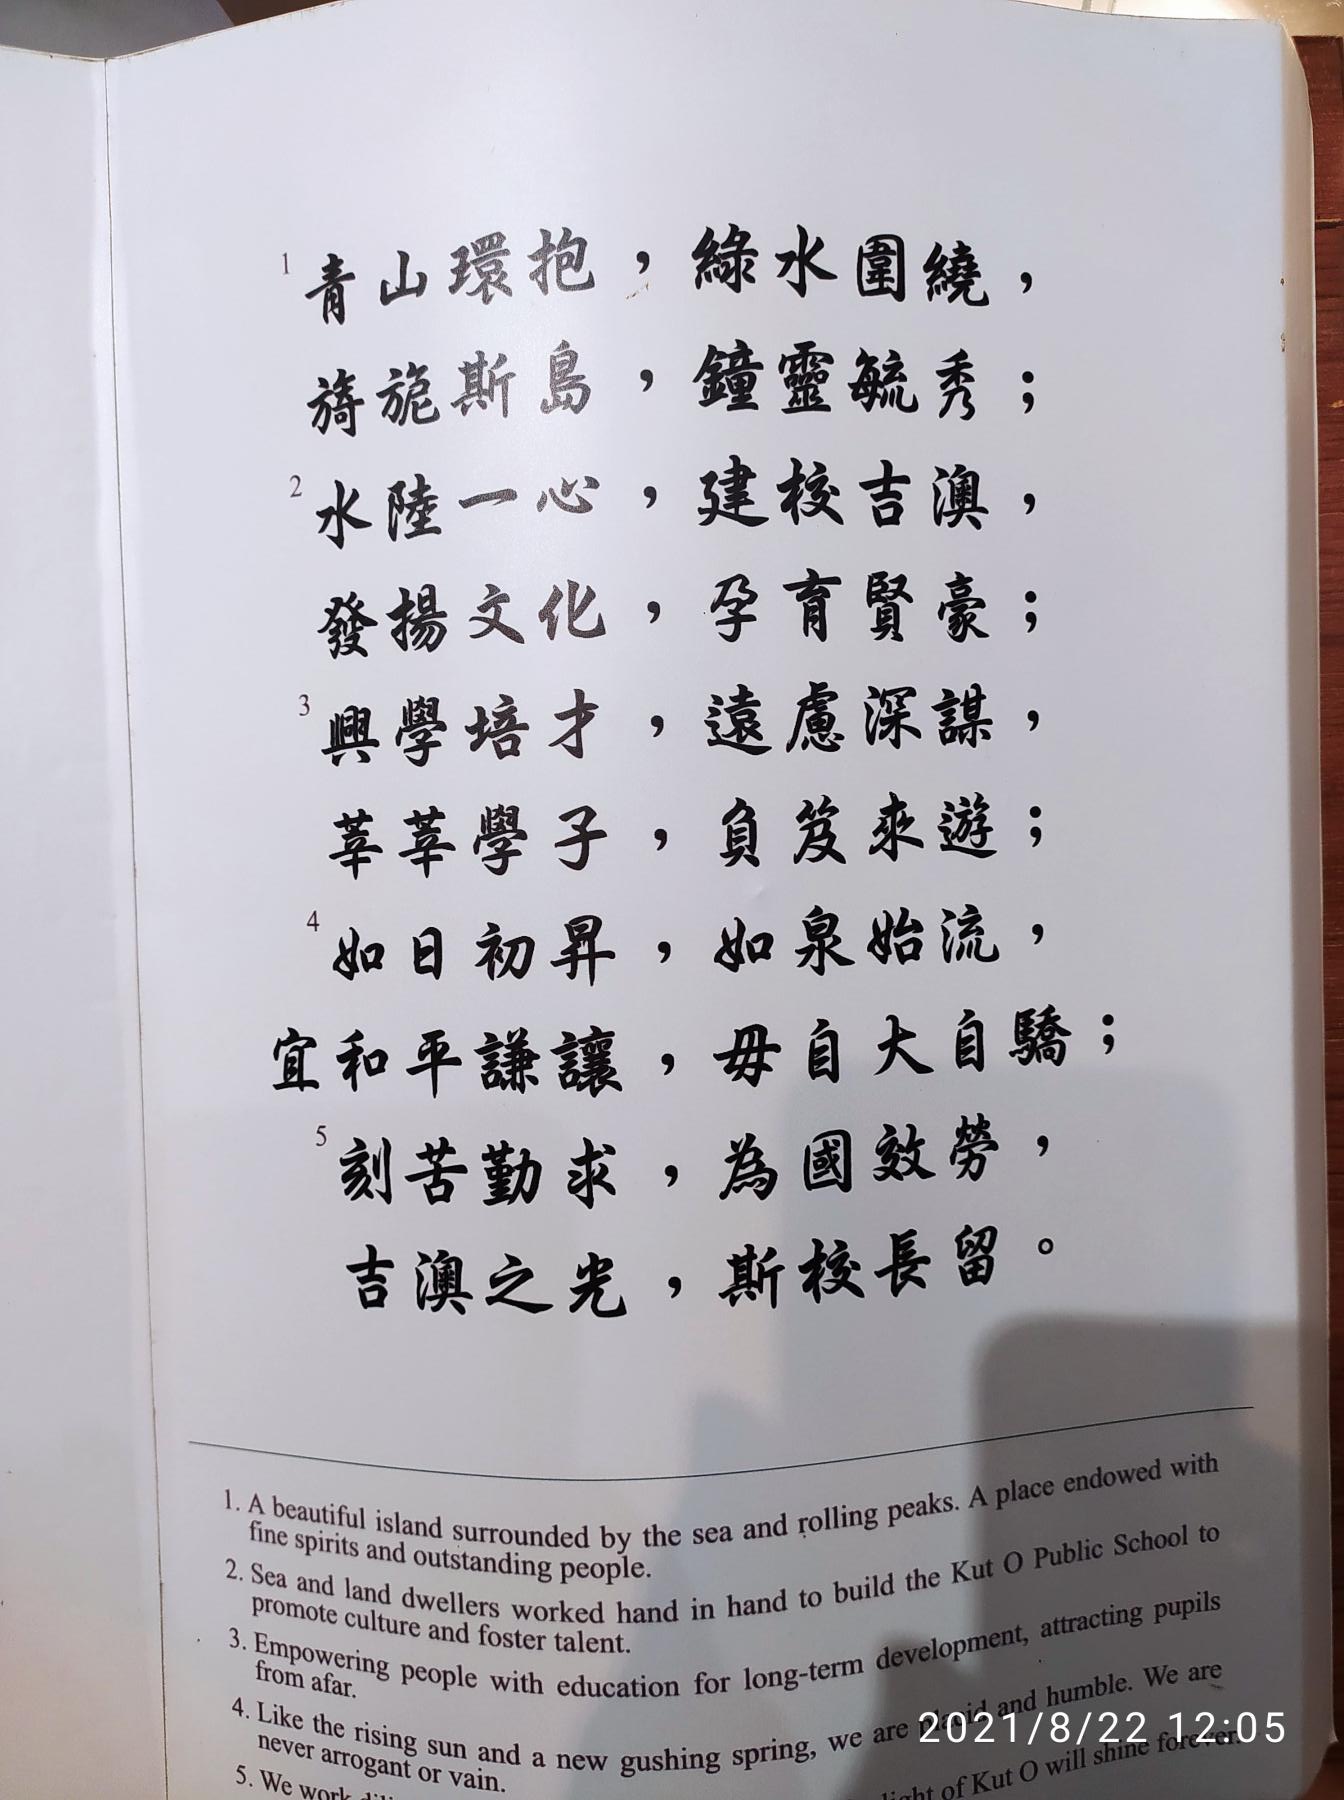 1 青山環抱，綠水圍繞，
旖旎斯島，鐘靈毓秀；
2 水陸一心，建校吉澳，
發揚文化，孕育賢豪；
3 興學培才，遠慮深謀，
莘莘學子，負笈來遊；
4 如日初昇，如泉始流，
宜和平謙讓，毋自大自驕；
5 刻苦勤求，為國效勞，
吉澳之光，斯校長留。
1. A beautiful island surrounded by the sea and rolling peaks. A place endowed with
fine spirits and outstanding people.
2. Sea and land dwellers worked hand in hand to build the Kut O Public School to
promote culture and foster talent.
3. Empowering people with education for long-term development, attracting pupils
from afar.
4. Like the rising sun and a new gushing spring, we are placid and humble. We are
never arrogant or vain.
5. We work light of Kut O will shine forever.
2021/8/22 12:05